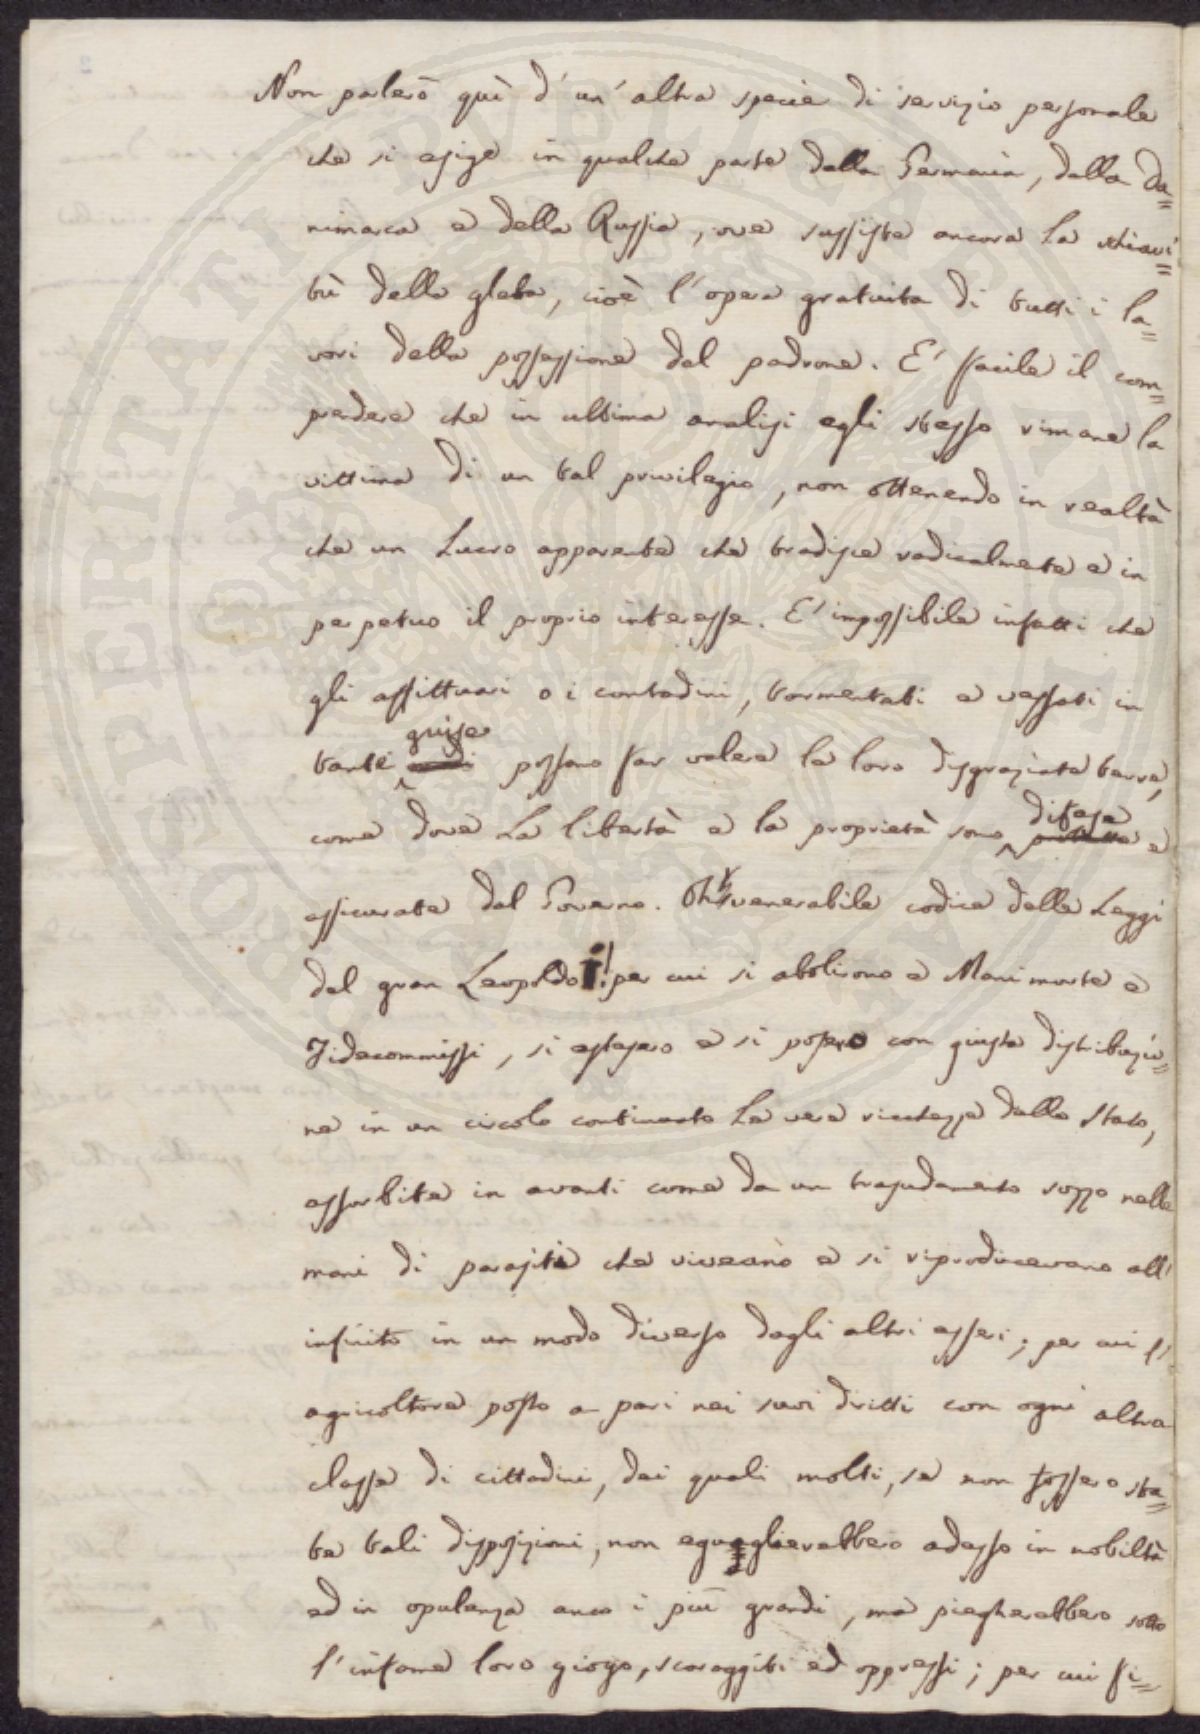 Non parlerò quì d'un'altra specie di servizio personale
che si esige in qualche parte della Germania, della Da=
nimarca e della Russia, ove sussiste ancora la schiavi=
tù della gleba, cioè l'opera gratuita di tutti i la=
vori della possessione del padrone. E' facile il com=
prendere che in ultima analisi egli stesso rimane la
vittima di un tal privilegio, non ottenendo in realtà
che un Lucro apparente che tradisce radicalmente e in
perpetuo il proprio interesse. E' impossibile infatti che
gli affittuari o i contadini, tormentati e vessati in
guise
tante possano far valere la loro disgraziata terra,
difese
come dove La libertà e la proprietà sono protette e
assicurate dal Governo. Oh! venerabile codice delle Leggi
del gran Leopoldo I! per cui si abolirono e Mani morte e
Fidecommissi, si estesero e si posero con giusta distribuzio=
ne in un circolo continuato La vera ricchezza dello Stato,
assorbite in avanti come da un trasudamento sozzo nelle
mani di parasiti che viveano e si riproducevano all'
infinito in un modo diverso dagli altri esseri; per cui l'
agricoltore posto a pari nei suoi diritti con ogni altra
classe di cittadini, dei quali molti, se non fossero sta=
te tali disposizioni, non eguaglierebbero adesso in nobiltà
ed in opulenza anco i più grandi, ma piegherebbero sotto
l'infame loro giogo, scoraggiti ed oppressi; per cui fi=
PROSPERITATI PVBLICAE AVGENDAE